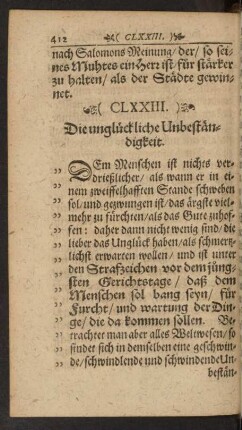 412 ( CLXXIII. )
nach Salomons Meinung/ der/ so sei-
nes Muhtes ein Herr ist für stärker
zu halten/ als der Städte gewin-
net.
( CLXXIII. )
Die unglückliche Unbestän-
digkeit.
DEm Menschen ist nichts ver-
„ drießlicher/ als wann er in ei-
„ nem zweiffelhafften Stande schweben
„ sol/ und gezwungen ist/ das ärgste viel-
„ mehr zu fürchten/ als das Gute zuhof-
„ fen: daher dann nicht wenig sind/ die
„ lieber das Unglück haben/ als schmertz-
„ lichst erwarten wollen/ und ist unter
„ den Strafzeichen vor dem jüng-
„ sten Gerichtstage/ daß dem
„ Menschen sol bang seyn/ für
„ Furcht/ und wartung der Din-
„ ge/ die da kommen sollen. Be-
„ trachtet man aber alles Weltwesen/ so
„ findet sich in demselben eine geschwin-
„ de/ schwindlende und schwindende Un-
bestän-